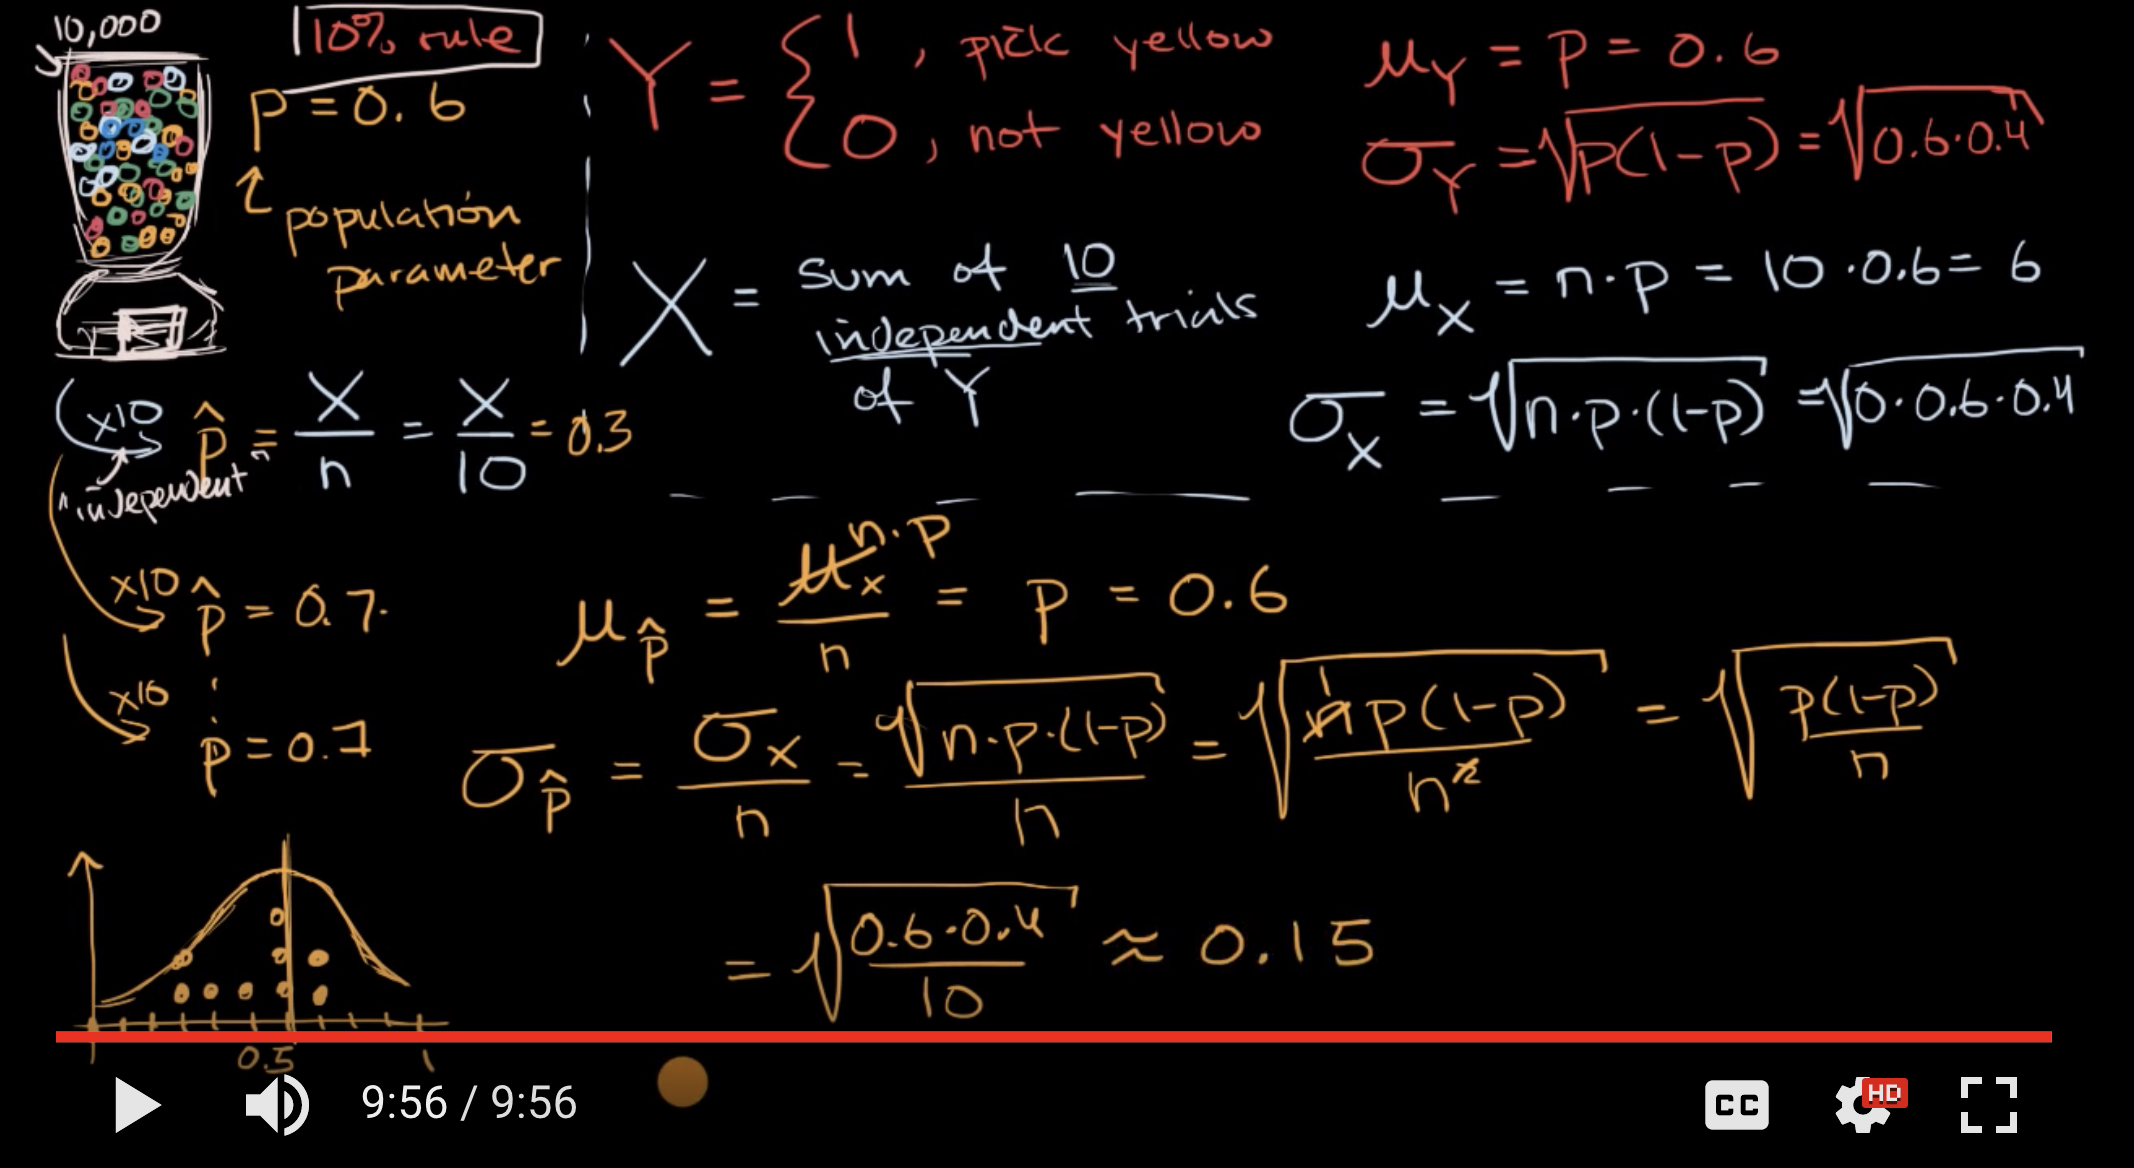 10,000
10% rule
p = 0.6
population
parameter
Y = { 1, pick yellow
0, not yellow
μ_Y = p = 0.6
σ_Y = √(p(1-p)) = √(0.6·0.4)
X = sum of 10
independent trials
of Y
μ_X = n·p = 10·0.6 = 6
σ_X = √(n·p·(1-p)) = √(10·0.6·0.4)
x10 p̂ = X/n = X/10 = 0.3
"independent"
x10 p̂ = 0.7
x10
p̂ = 0.7
μ_p̂ = μ_x/n = p = 0.6
n·p
σ_p̂ = σ_x/n = √(n·p·(1-p))/n = √(n p(1-p)/n²) = √(p(1-p)/n)
1
= √(0.6·0.4/10) ≈ 0.15
0.5 1
9:56 / 9:56
CC
HD